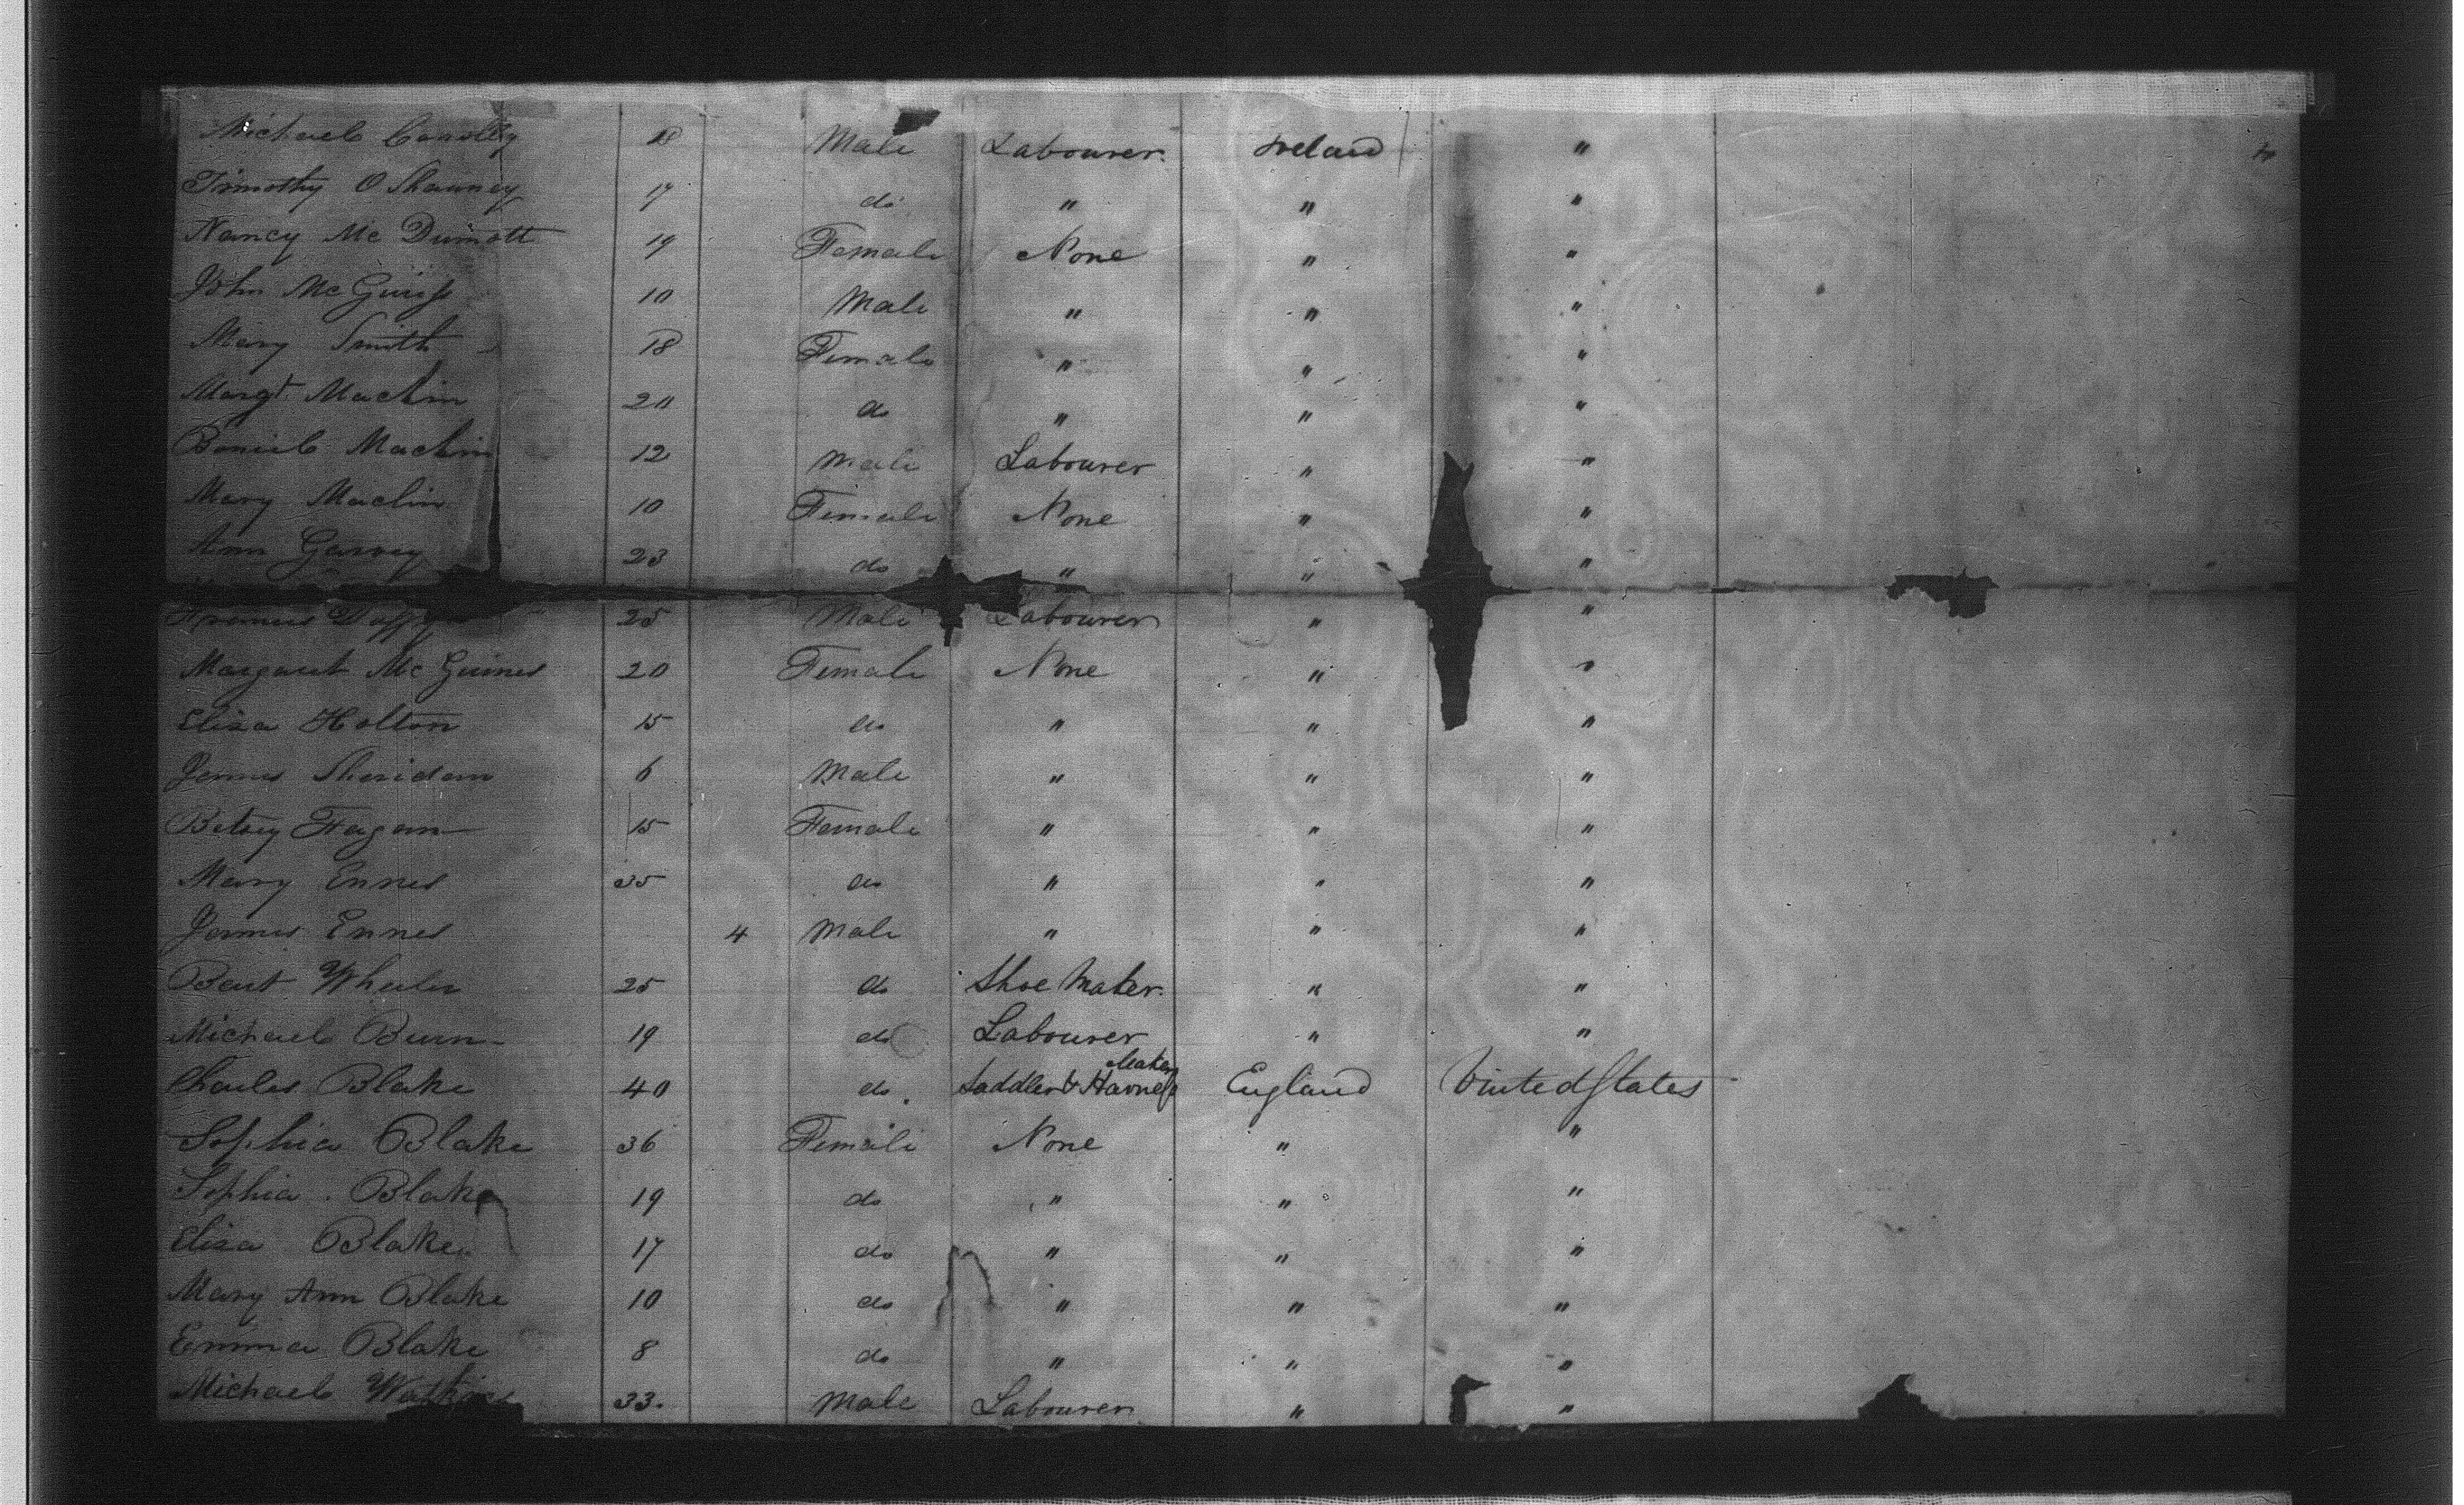 Michael Conolly 18 Male Labourer Ireland "
Timothy O Shauney 17 do " " "
Nancy Mc Dumott 19 Female None " "
John Mc Guiss 10 Male " " "
Mary Smith 18 Female " " "
Margt Machin 20 do " " "
Daniel Machin 12 Male Labourer " "
Mary Machin 10 Female None " "
Ann Garvey 23 do " " "
Duffy 25 Male Labourer " "
Margaret Mc Guines 20 Female None " "
Eliza Holton 15 do " " "
James Sheridan 6 Male " " "
Betsy Fagan 15 Female " " "
Mary Ennes 35 do " " "
James Ennes 4 Male " " "
Wheeler 25 do Shoe Maker " "
Michael Burn 19 do Labourer " "
Charles Blake 40 do Saddler & Harness Maker England United States
Sophia Blake 36 Female None " "
Sophia Blake 19 do " " "
Eliza Blake 17 do " " "
Mary Ann Blake 10 do " " "
Emma Blake 8 do " " "
Michael Watkins 33 Male Labourer " "